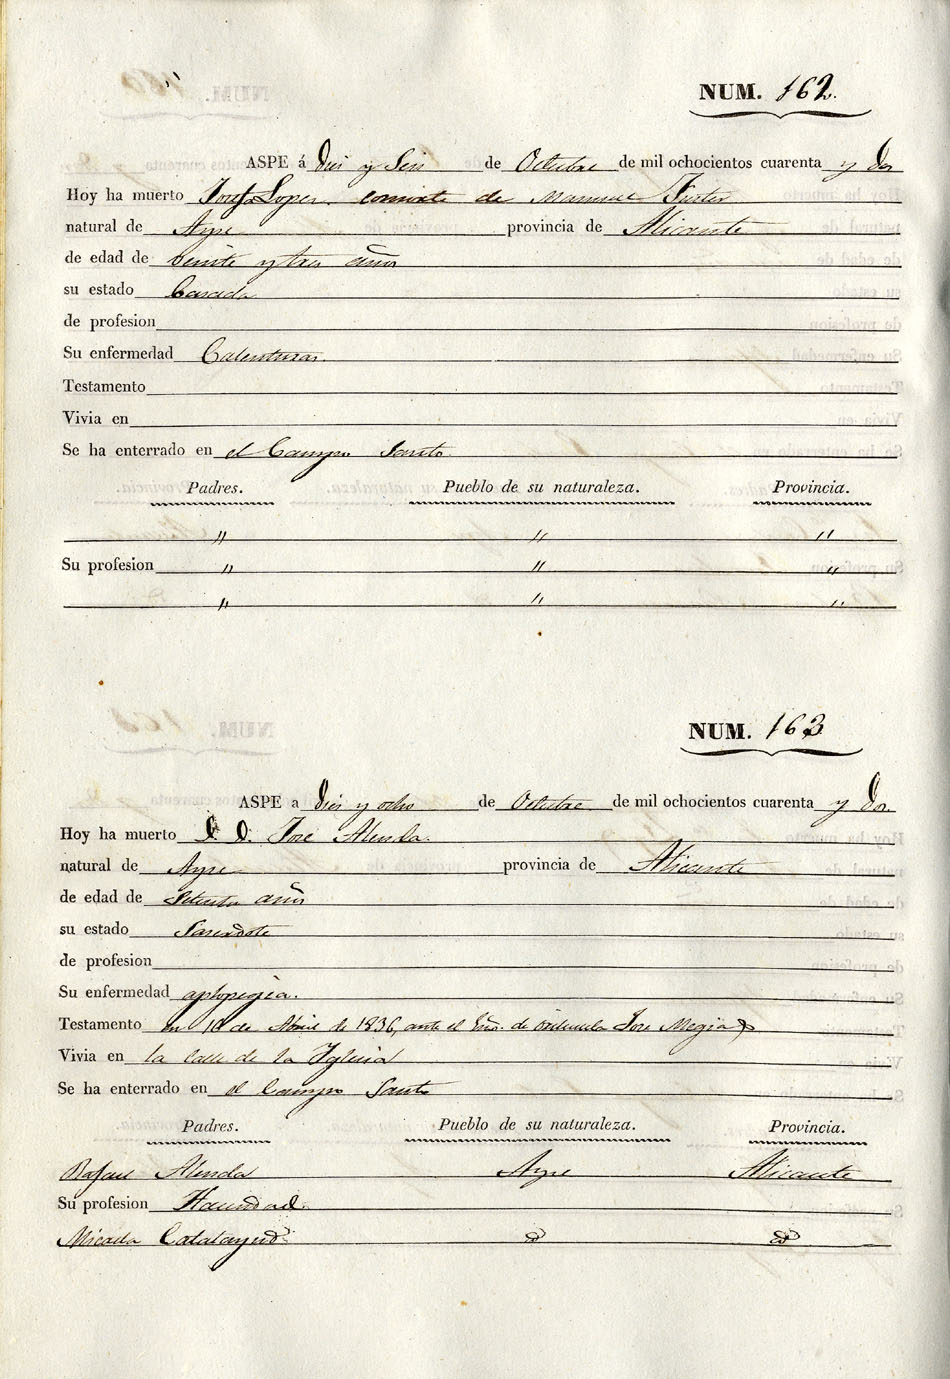 NUM. 162.
ASPE á Dies y Seis de Octubre de mil ochocientos cuarenta y dos
Hoy ha muerto Josefa Lopez consorte de Manuel
natural de Aspe provincia de Alicante
de edad de veinte y tres años
su estado Casada
de profesion
Su enfermedad Calenturas.
Testamento
Vivia en
Se ha enterrado en el Campo Santo.
Padres. Pueblo de su naturaleza. Provincia.
" " "
Su profesion " " "
" " "
NUM. 163
ASPE a Dies y ocho de Octubre de mil ochocientos cuarenta y dos
Hoy ha muerto D. José Alenda.
natural de Aspe provincia de Alicante
de edad de Setenta años
su estado Sacerdote
de profesion
Su enfermedad
Testamento en 18 de Abril de 1836, ante el Esno. de Orihuela Jose Megias
Vivia en la Calle de la Iglesia
Se ha enterrado en el Campo Santo
Padres. Pueblo de su naturaleza. Provincia.
Rafael Alenda Aspe Alicante
Su profesion Hacendad.
Micaela Catalayud id id